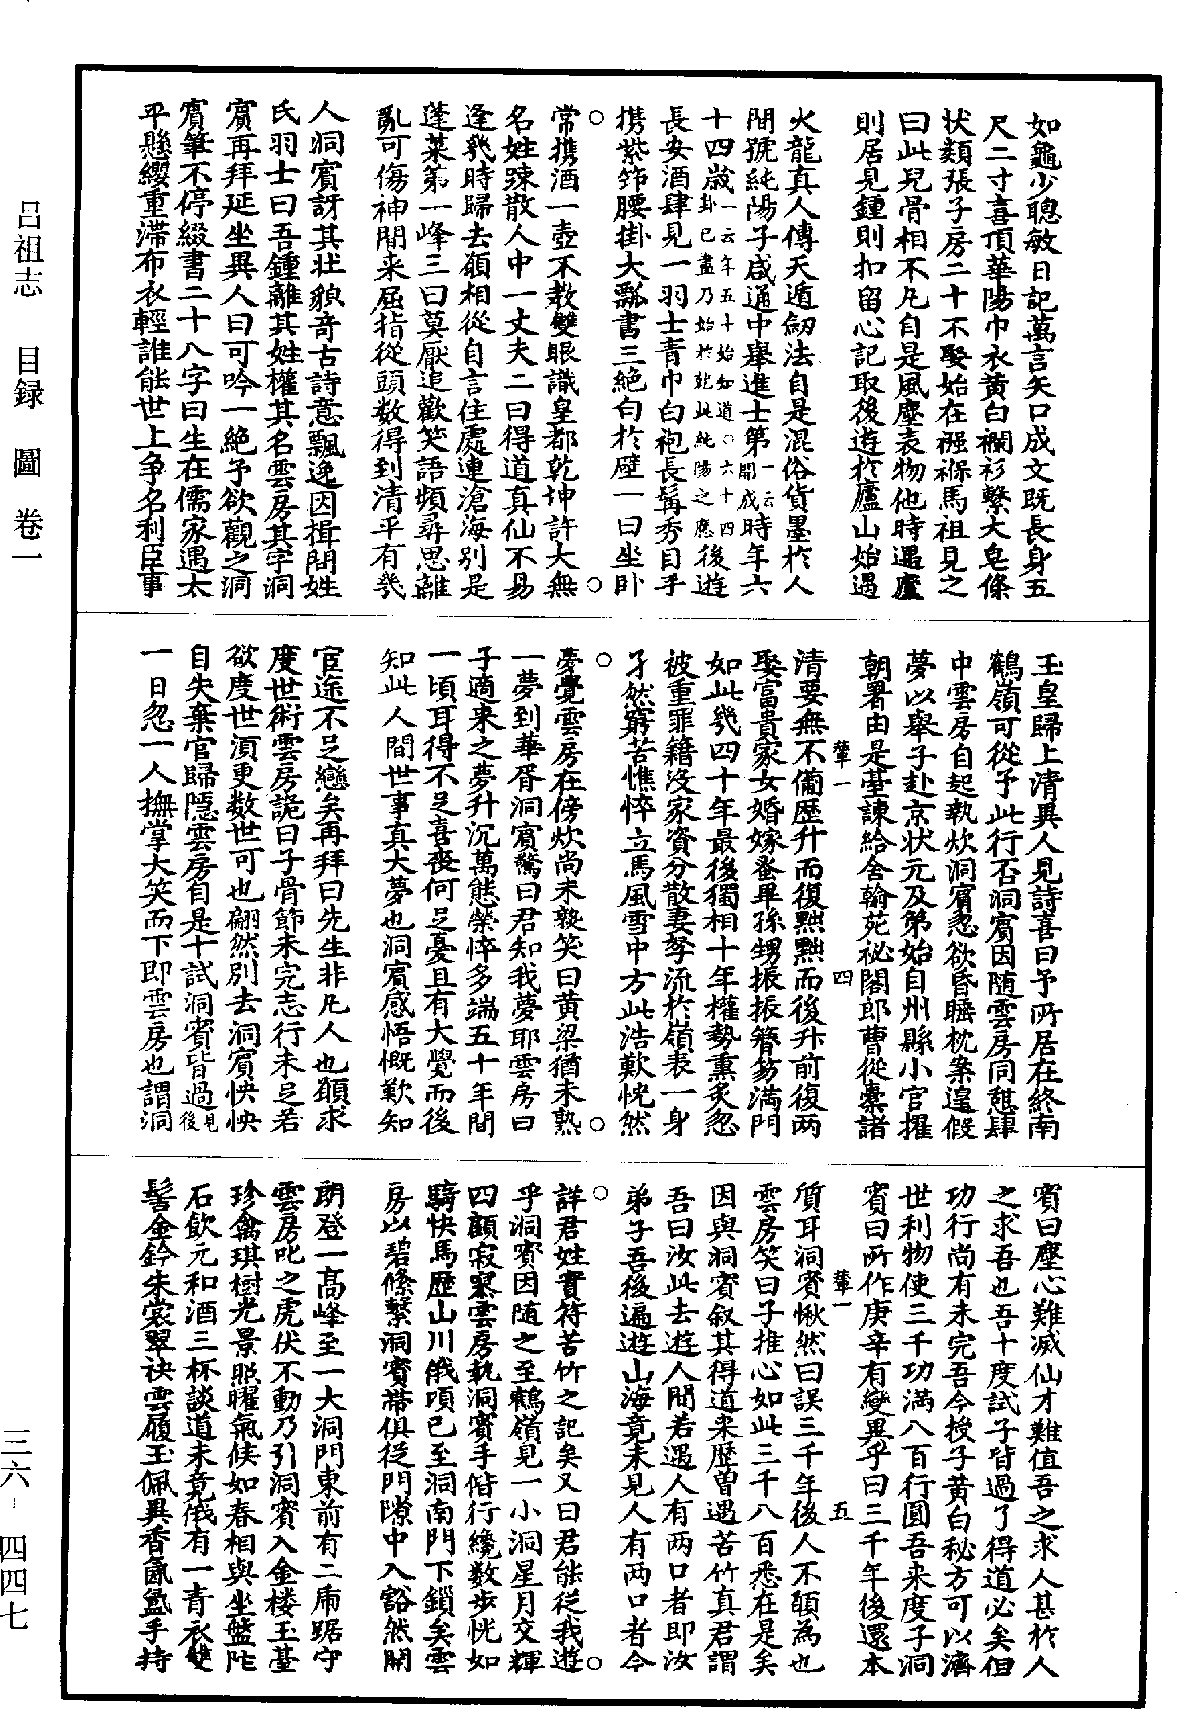 呂祖志 目録 圖 卷一
三六-四四七
如龜少聰敏日記萬言矢口成文既長身五
尺二寸喜頂華陽巾衣黃白襴衫繫大皂絛
状類張子房二十不娶始在襁褓馬祖見之
曰此兒骨相不凡自是風塵表物他時遇廬
則居見鍾則扣留心記取後遊於廬山始遇
火龍真人傳天遁劒法自是混俗貨墨於人
間號純陽子咸通中舉進士第一云開成時年六
十四歲一云年五十始知道○六十四卦已盡乃始於乾此純陽之應後遊
長安酒肆見一羽士青巾白袍長髯秀目手
携紫笻腰掛大瓢書三絶句於壁一曰坐卧
常携酒一壺不教雙眼識皇都乾坤許大無
名姓踈散人中一丈夫二曰得道真仙不易
逢幾時歸去願相從自言住處連滄海別是
蓬萊第一峰三曰莫厭追歡笑語頻尋思離
亂可傷神閒来屈指從頭数得到清平有幾
人洞賓訝其壯貌奇古詩意飄逸因揖問姓
氏羽士曰吾鍾離其姓權其名雲房其字洞
賓再拜延坐異人曰可吟一絶予欲觀之洞
賓筆不停綴書二十八字曰生在儒家遇太
平懸纓重滯布衣輕誰能世上争名利臣事
玉皇歸上清異人見詩喜曰予所居在終南
鶴嶺可從予此行否洞賓因随雲房同憇肆
中雲房自起執炊洞賓忽欲昏睡枕案遑假
夢以舉子赴京状元及第始自州縣小官擢
朝署由是臺諫給舍翰苑祕閣郎曹從橐諸
清要無不備歴升而復黜黜而後升前復两
娶富貴家女婚嫁蚤畢孫甥振振簪笏滿門
如此幾四十年最後獨相十年權勢熏炙忽
被重罪籍沒家資分散妻孥流於嶺表一身
孑然窮苦憔悴立馬風雪中方此浩歎恍然
夢覺雲房在傍炊尚未熟笑曰黃粱猶未熟
一夢到華胥洞賓驚曰君知我夢耶雲房曰
子適来之夢升沉萬態榮悴多端五十年間
一頃耳得不足喜喪何足憂且有大覺而後
知此人間世事真大夢也洞賓感悟慨歎知
宦途不足戀矣再拜曰先生非凡人也願求
度世術雲房詭曰子骨節未完志行未足若
欲度世湏更数世可也翩然別去洞賓怏怏
自失棄官歸隱雲房自是十試洞賓皆過見後
一日忽一人撫掌大笑而下即雲房也謂洞
賓曰塵心難滅仙才難值吾之求人甚於人
之求吾也吾十度試子皆過了得道必矣但
功行尚有未完吾今授子黃白秘方可以濟
世利物使三千功滿八百行圓吾来度子洞
賓曰所作庚辛有變異乎曰三千年後還本
質耳洞賓愀然曰誤三千年後人不願為也
雲房笑曰子推心如此三千八百悉在是矣
因與洞賓叙其得道来歴曽遇苦竹真君謂
吾曰汝此去遊人間若遇人有两口者即汝
弟子吾後遍遊山海竟未見人有两口者今
詳君姓實符苦竹之記矣又曰君能從我遊
乎洞賓因随之至鶴嶺見一小洞星月交輝
四顧寂寥雲房執洞賓手偕行纔数步恍如
騎快馬歴山川俄頃已至洞南門下鎖矣雲
房以碧絛繫洞賓帶俱從門隙中入豁然開
朗登一髙峰至一大洞門東前有二虎踞守
雲房叱之虎伏不動乃引洞賓入金楼玉臺
珍禽琪樹光景照曜氣候如春相與坐盤陀
石飲元和酒三杯談道未竟俄有一青衣雙
髻金鈴朱裳翠袂雲履玉佩異香氤氳手持
華一
四
華一
五